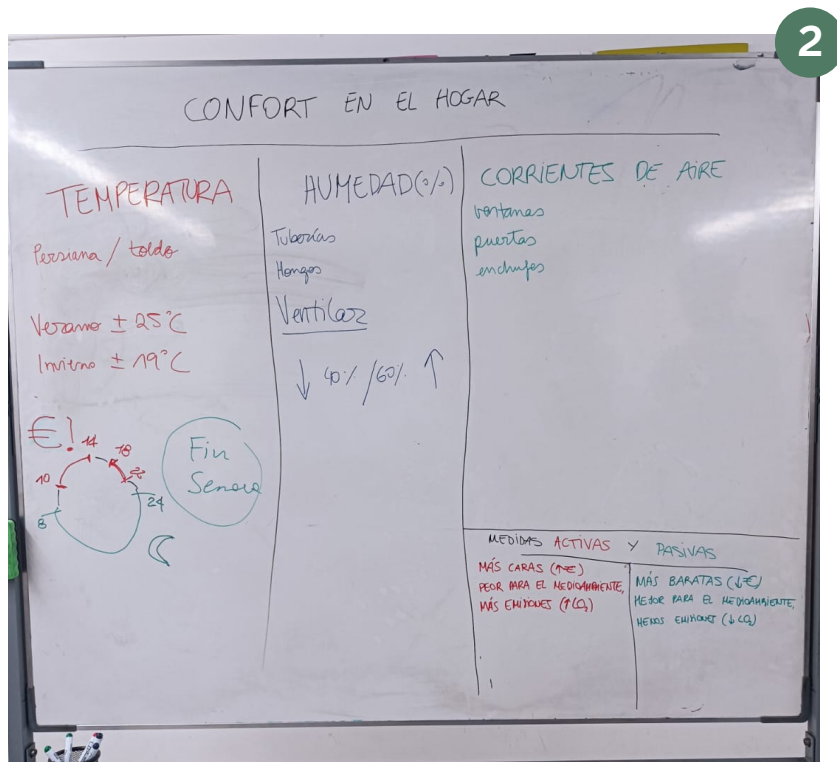 2
CONFORT EN EL HOGAR
TEMPERATURA
Persiana / toldo
Verano ± 25°C
Invierno ± 19°C
€!
8
10
14
18
22
24
Fin
Semana
HUMEDAD (%)
Tuberías
Hongos
Ventilar
↓ 40% / 60% ↑
CORRIENTES DE AIRE
ventanas
puertas
enchufes
MEDIDAS ACTIVAS Y PASIVAS
MÁS CARAS (↑€)
PEOR PARA EL MEDIOAMBIENTE,
MÁS EMISIONES (↑CO₂)
MÁS BARATAS (↓€)
MEJOR PARA EL MEDIOAMBIENTE,
MENOS EMISIONES (↓CO₂)